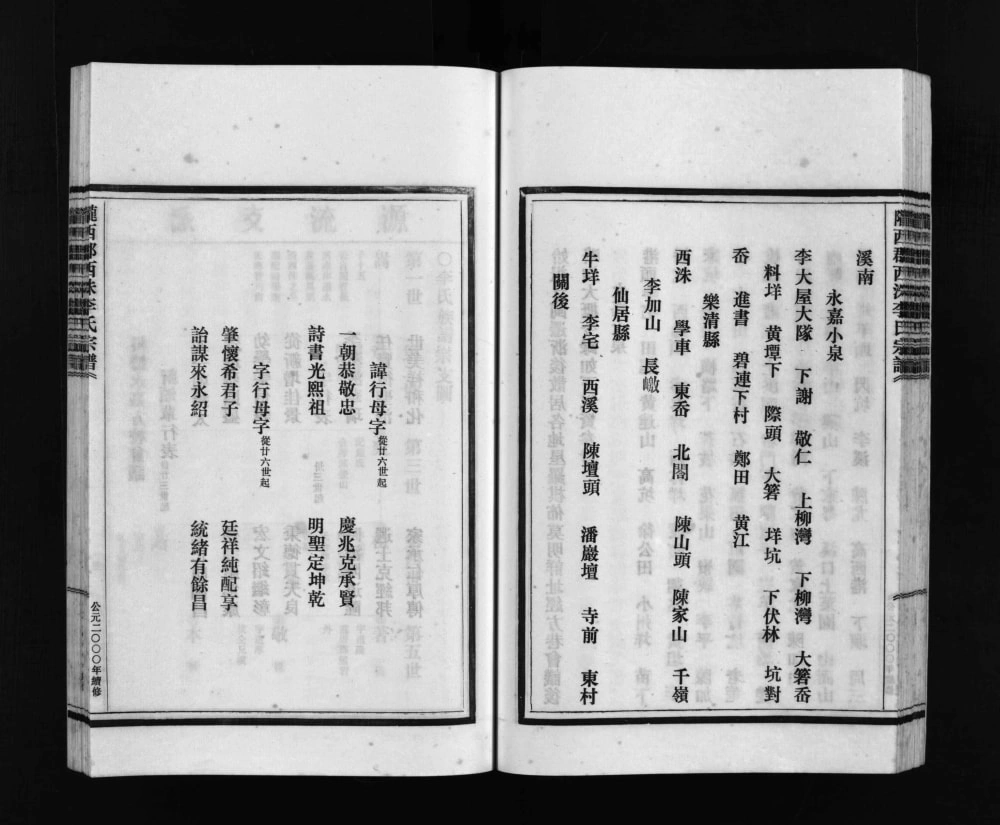 溪南
永嘉小泉
李大屋大隊 下謝 敬仁 上柳灣 下柳灣 大箬岙
料垟 黄墰下 際頭 大箬 垟坑 下伏林 坑對
岙 進書 碧連下村 鄭田 黄江
樂清縣
西洙 學車 東岙 北閣 陳山頭 陳家山 千嶺
李加山 長嶔
仙居縣
牛垟 李宅 西溪 陳壇頭 潘巖壇 寺前 東村
關後
諱行母字從廿六世起
一朝恭敬忠 慶兆克承賢
詩書光熙祖 明聖定坤乾
字行母字從廿六世起
肇懷希君子 廷祥純配享
詒謀來永紹 統緒有餘昌
隴西郡西洙李氏宗譜
公元二〇〇〇年續修